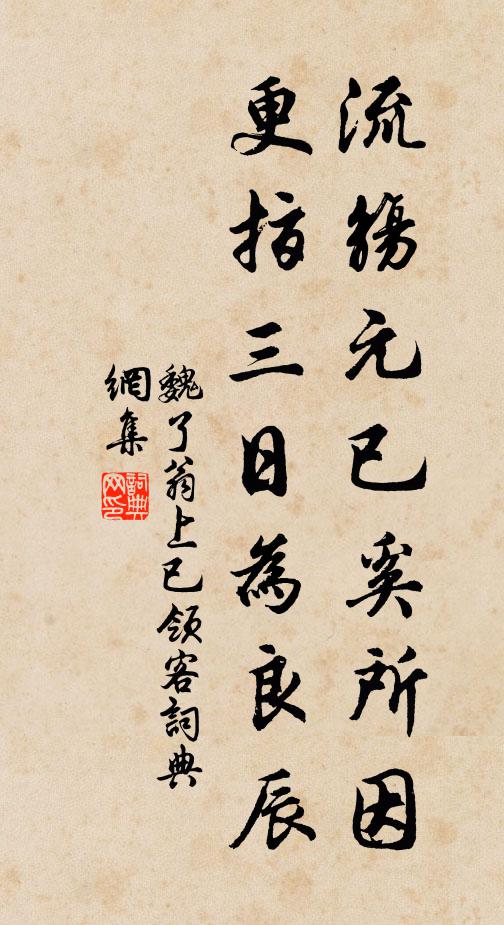 流觴元巳奚所因
更指三日為良辰
魏了翁上巳領客詞典
網集
詞典
网印